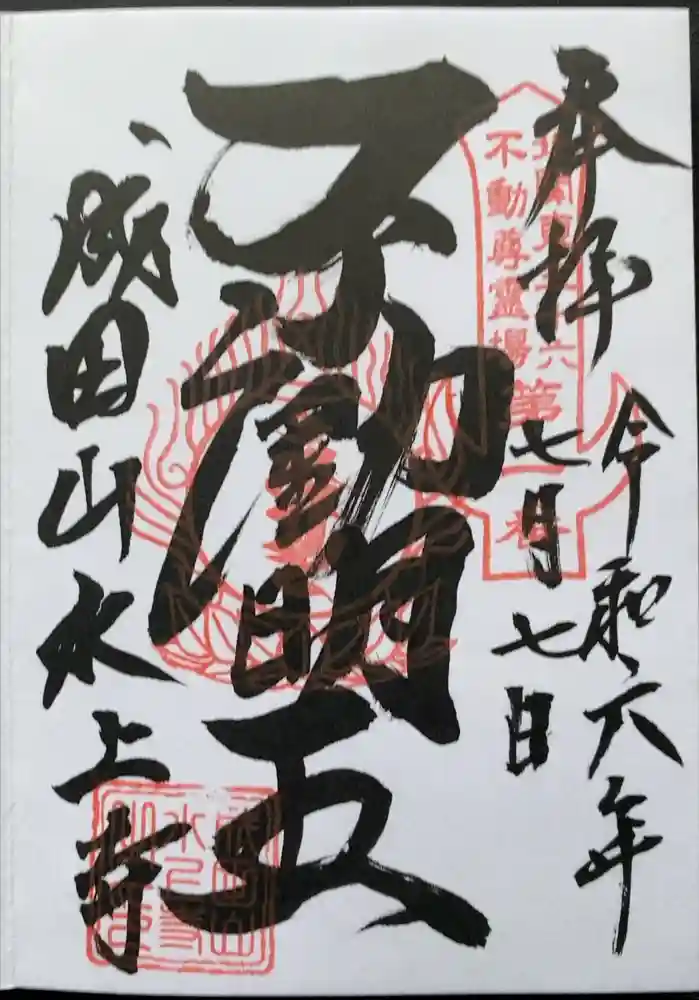 奉拝
令和六年
七月七日
北関東三十六
不動尊靈場
第一番
不動明王
成田山水上寺